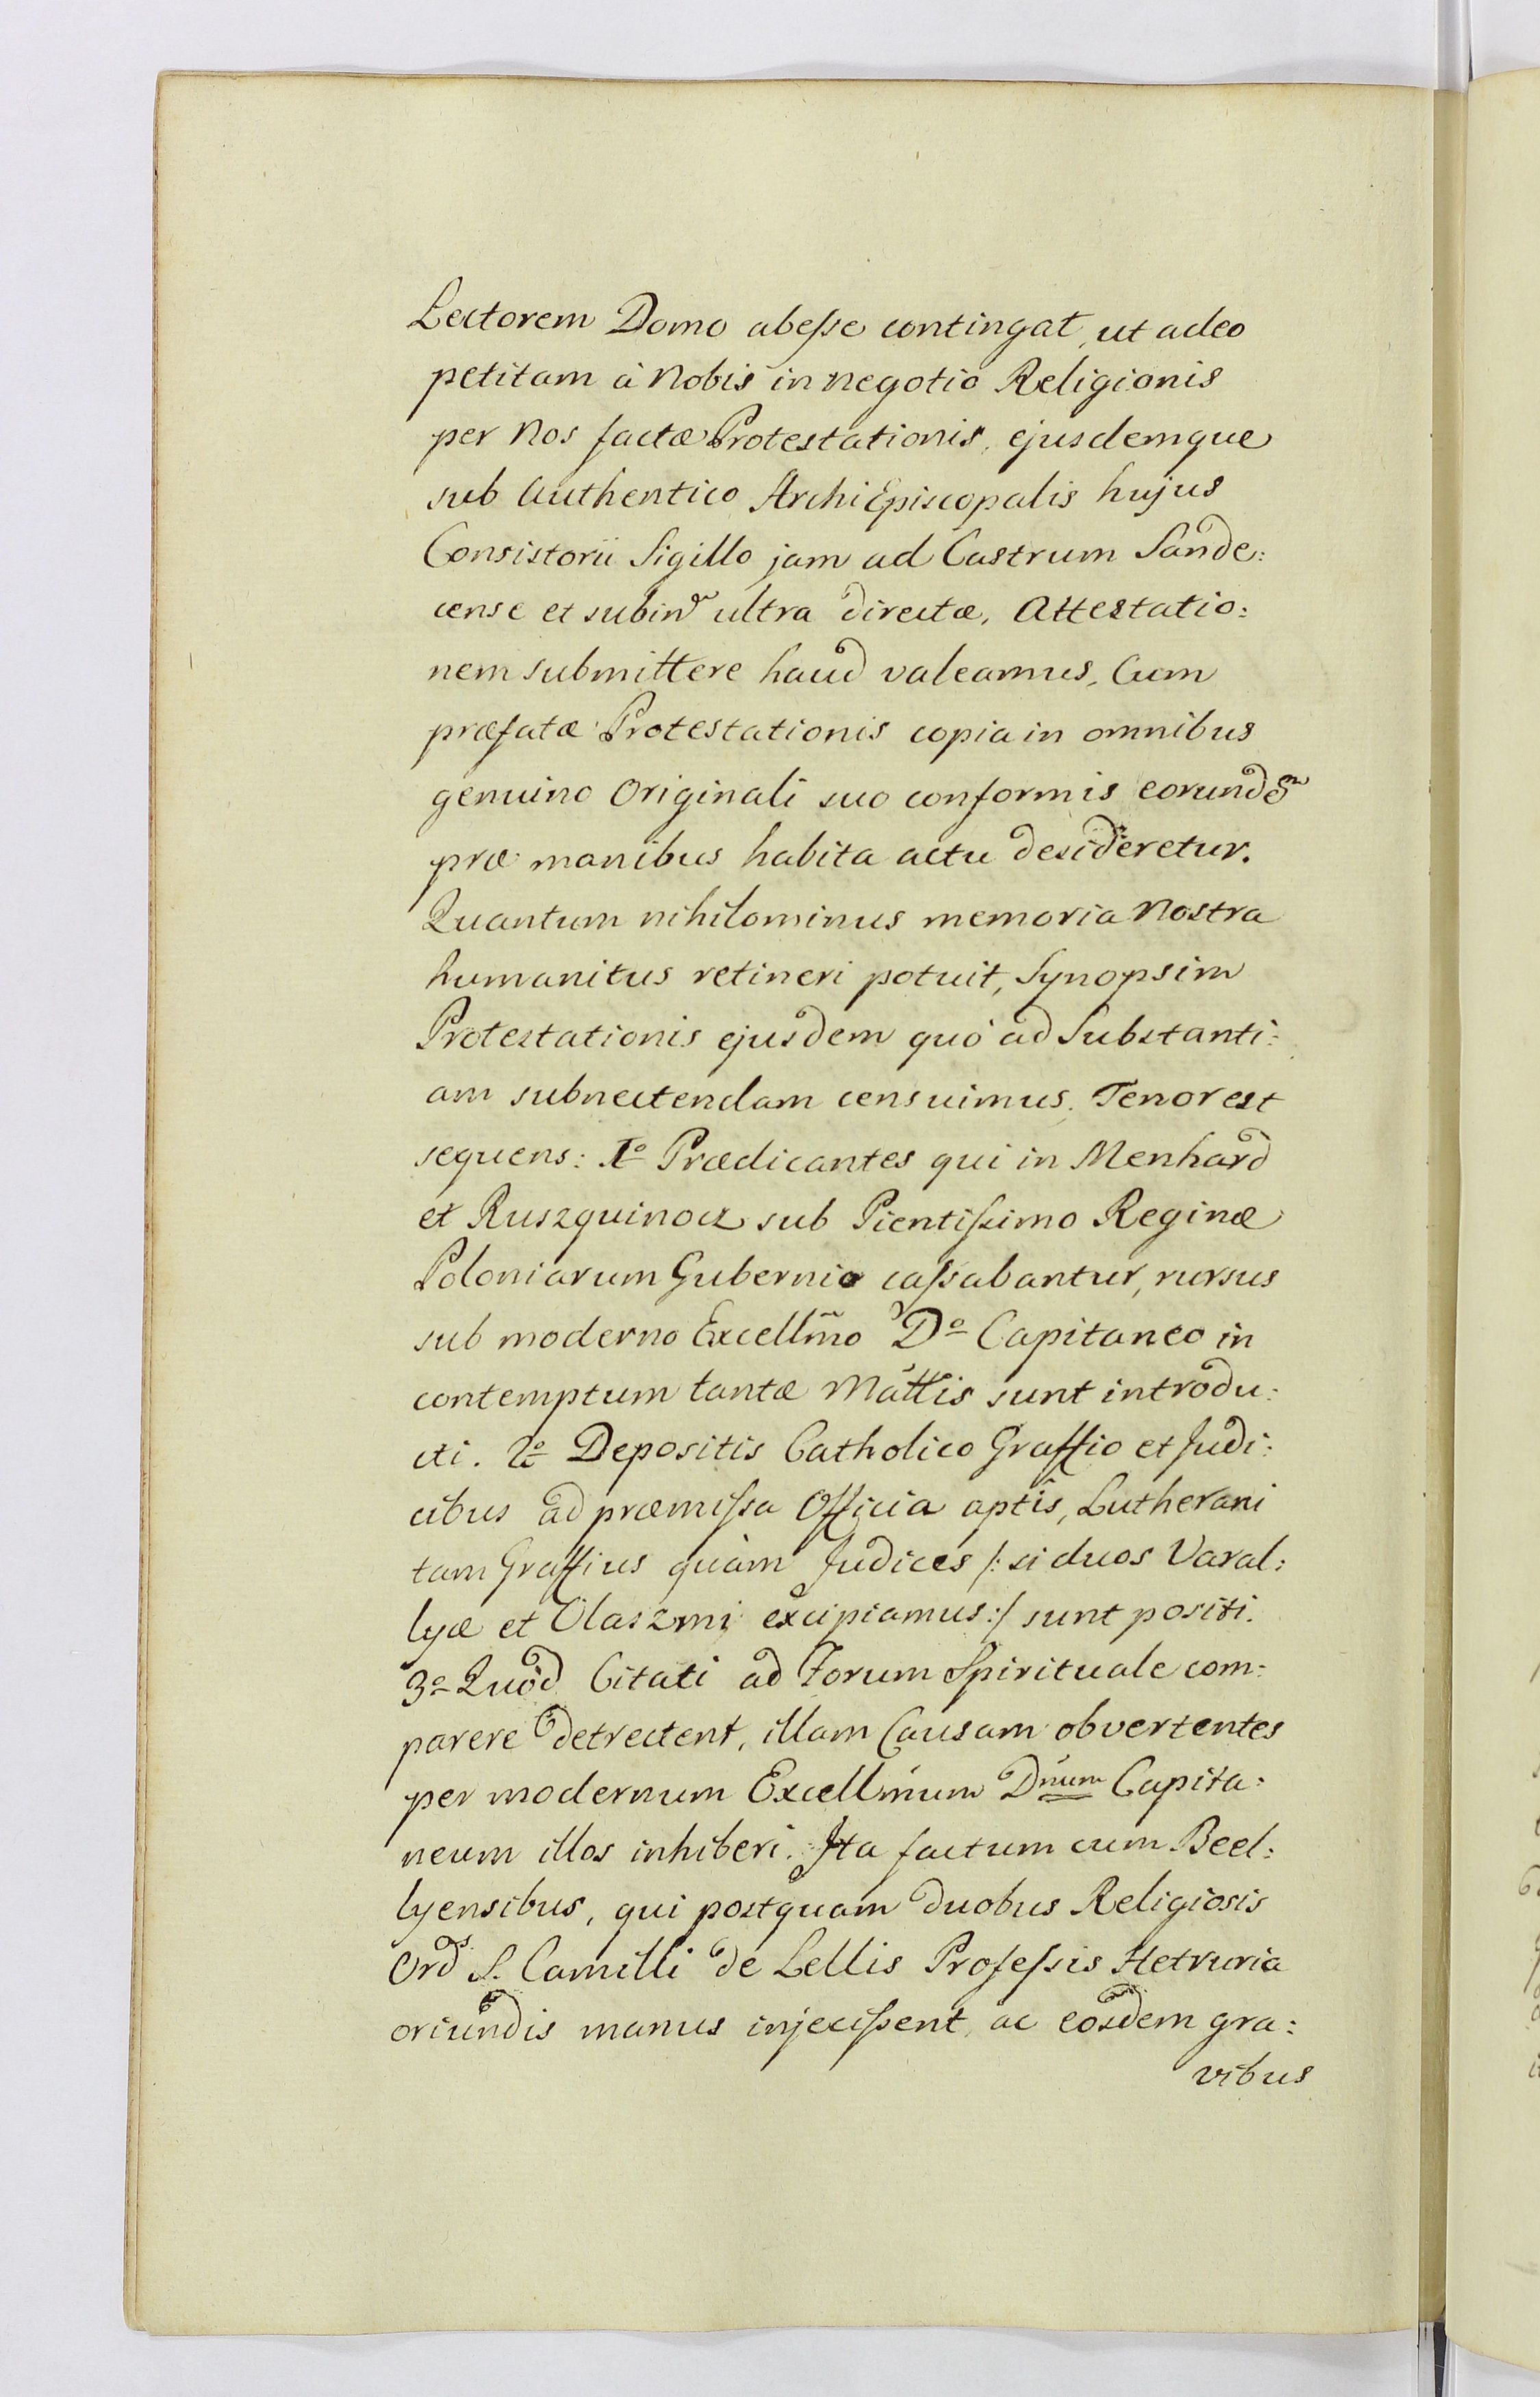 Lectorem Domo abesse contingat, ut adeo
petitam à Nobis in negotio Religionis
per Nos factæ Protestationis, ejusdemque
sub Authentico ArchiEpiscopalis hujus
Consistorii Sigillo jam ad Castrum Sande:
cense et subinđ ultra directæ, Attestatio:
nem submittere haud valeamus, Cum
præfatæ Protestationis copia in omnibus
genuino Originali suo conformis eorundem
præ manibus habita actu desideretur.
Quantum nihilominus memoria Nostra
humanitus retineri potuit, Synopsim
Protestationis ejusdem quó ad Substanti:
am subnectendam censuimus. Tenor est
sequens: 1o Prædicantes qui in Menhard
et Ruszquinocz sub Pientissimo Reginæ
Poloniarum Gubernio cassabantur, rursus
sub moderno Excellm̃o Do Capitaneo in
contemptum tantæ Mãttis sunt introdu:
cti. 2o Depositis Catholico Graffio et Judi:
cibus ad præmissa Officia aptis, Lutherani
tam Graffius quàm Judices /: si duos Varal:
lyæ et Olaszmi excipiamus :/ sunt positi.
3o Quòd Citati ad Forum Spirituale com:
parere detrectent, illam Causam obvertentes
per modernum Excellm̃um Dnum Capita:
neum illos inhiberi. Ita factum cum Beel:
lyensibus, qui postquam duobus Religiosis
Ords S. Camilli de Lellis Professis Hetruria
oriundis manus injecissent, ac eosdem gra:
vibus